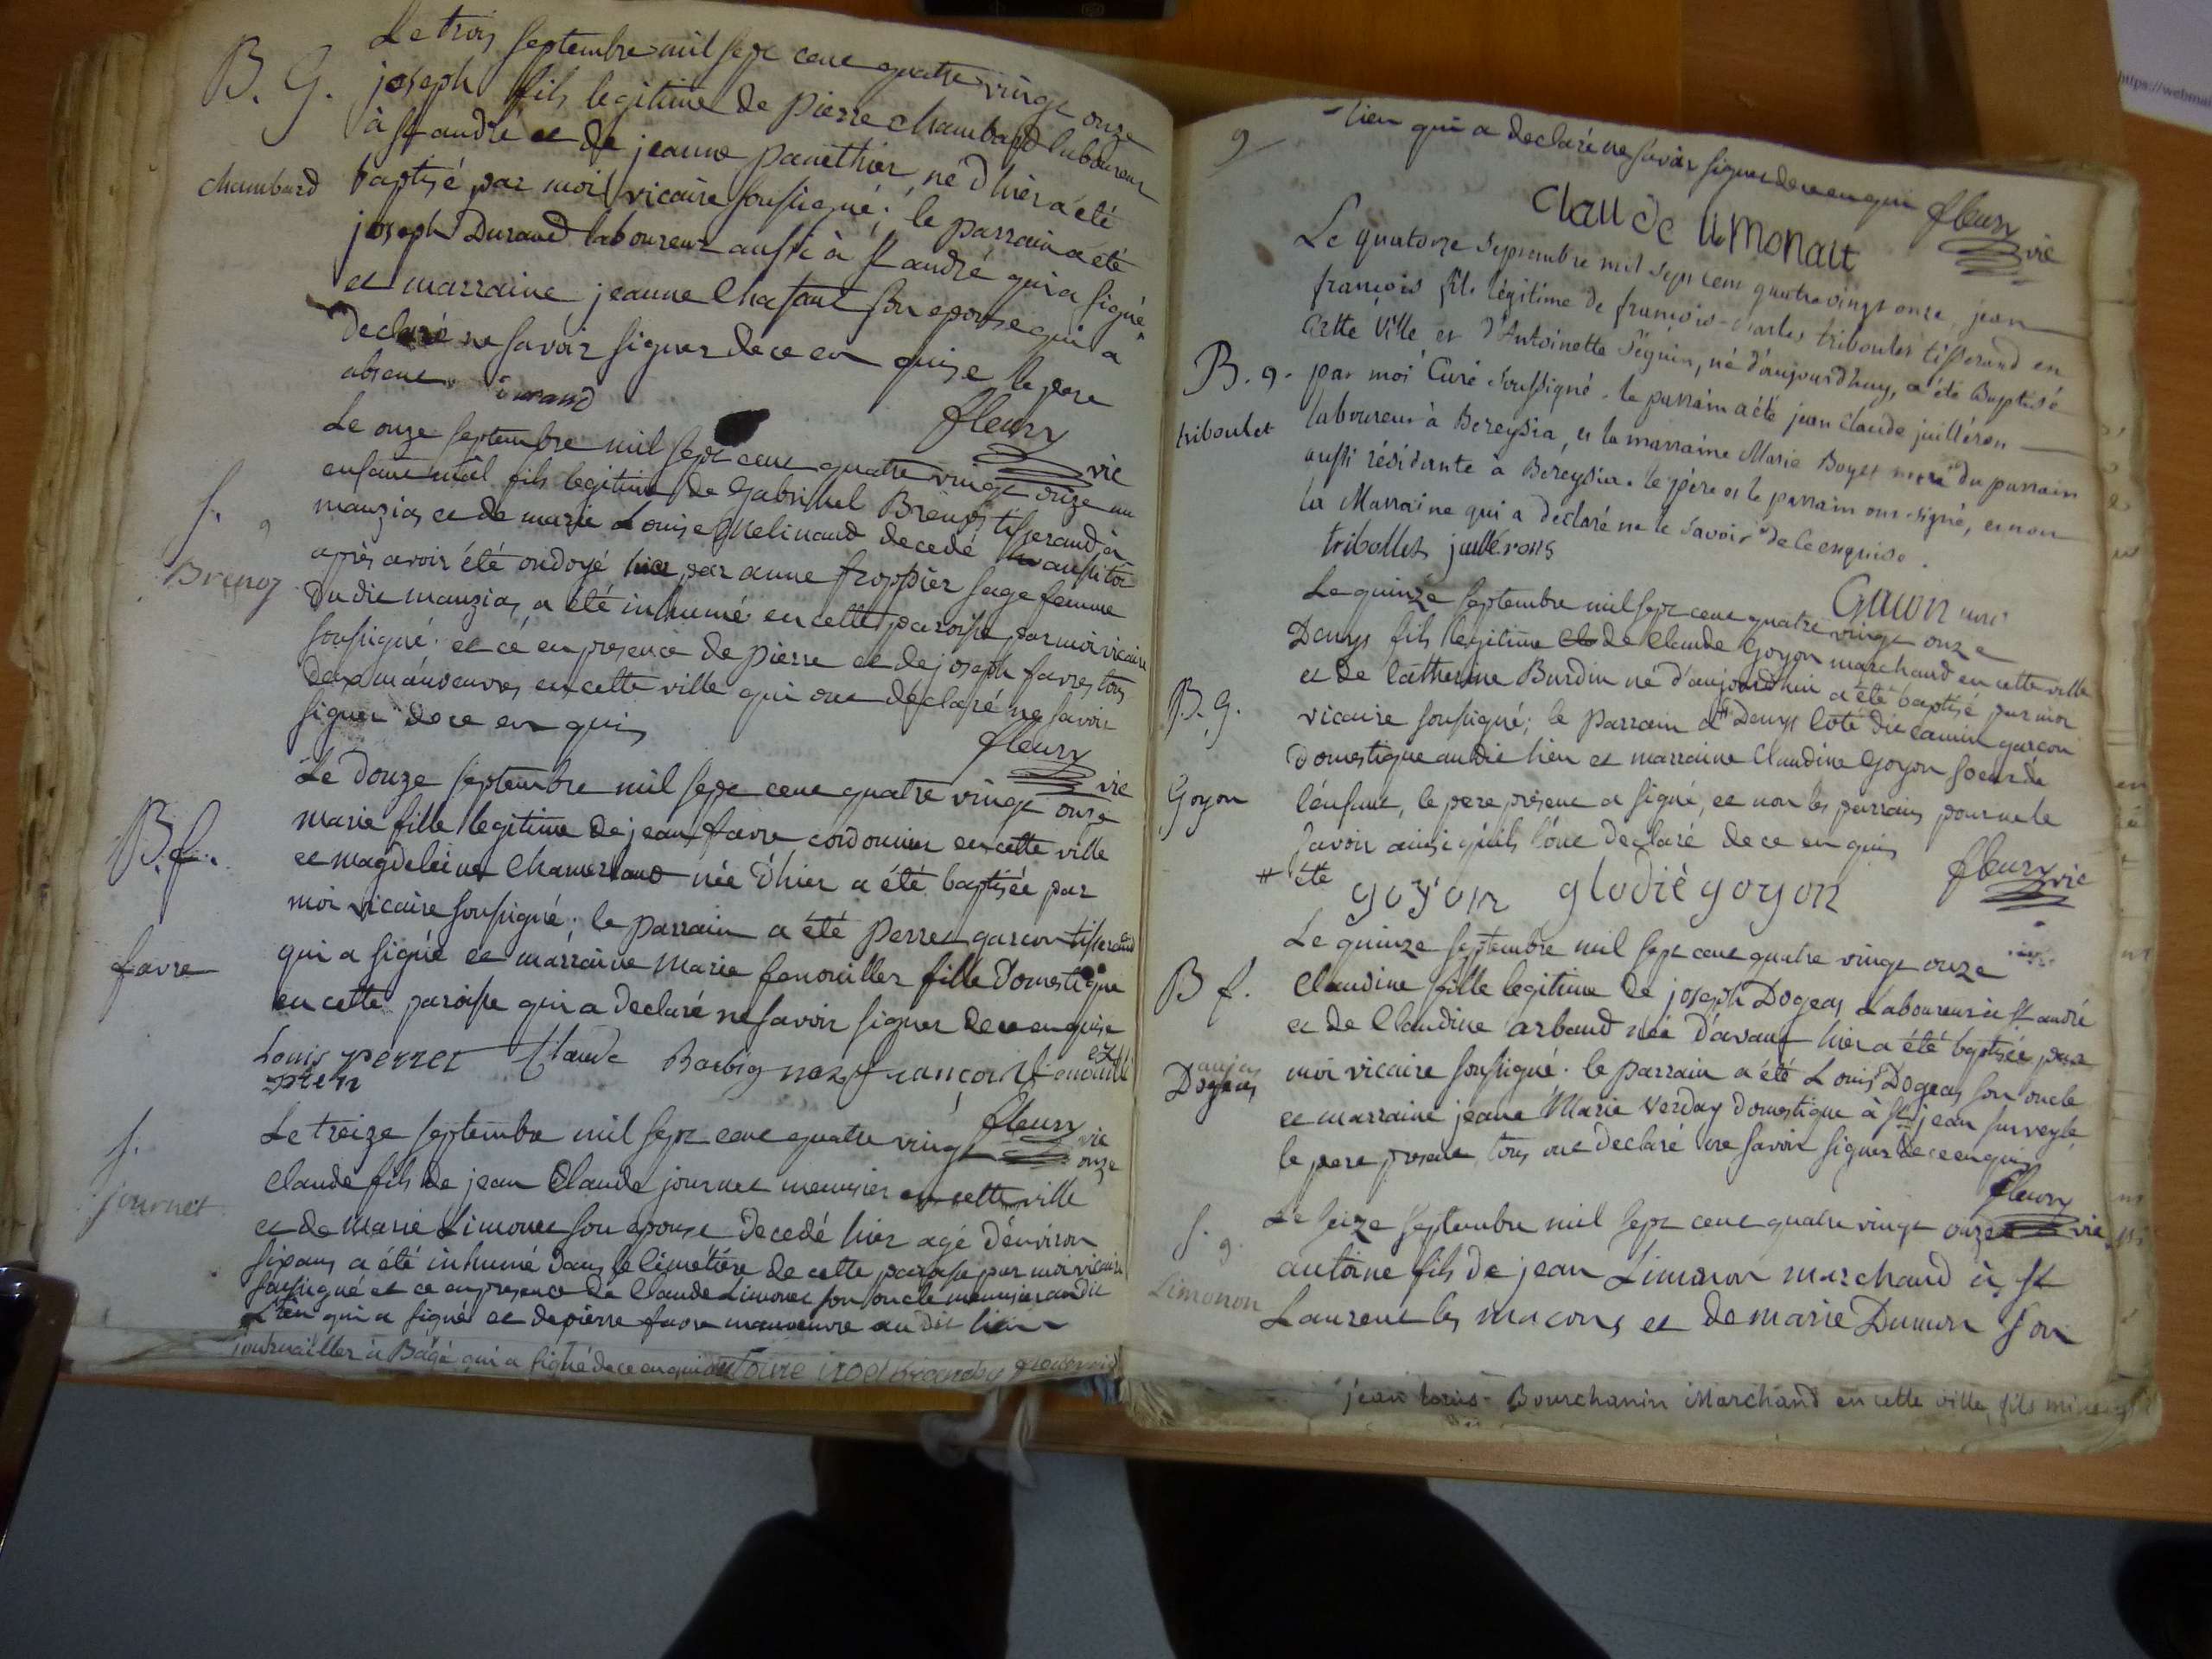 Le trois septembre mil sept cent quatre vingt onze
B. G. joseph fils legitime de pierre chambard laboureur
à st andré et de jeanne panethier, né d'hier a été
chambard baptisé par moi vicaire soussigné; le parrain a été
joseph Durand laboureur aussi à st andré qui a signé
et marraine jeanne Chatant son epouse qui a
declaré ne savoir signer de ce en quise le pere
absent. durand
fleury vic
Le onze septembre mil sept cent quatre vingt onze un
enfant mâl fils legitime de Gabriel Brenot tisserand à
manziat et de marie Louise Melinand decedé aussitot
S. g
Brenot
après avoir été ondoyé par anne froppier sage femme
du dit manziat, a été inhumé en cette paroisse par moi vicaire
soussigné. et ce en presence de pierre et de joseph favre tous
deux manoeuvres en cette ville qui ont declaré ne savoir
signer de ce en quis
fleury vic
Le douze septembre mil sept cent quatre vingt onze
marie fille legitime de jean favre cordonnier en cette ville
B. f. et magdeleine née d'hier a été baptisée par
moi vicaire soussigné; le parrain a été perret garçon tisserand
favre qui a signé et marraine marie fenouiller fille domestique
en cette paroisse qui a declaré ne savoir signer de ce en quise
Louis perret Claude françoi
fleury vic
S. Le treize septembre mil sept cent quatre vingt onze
claude fils de jean Claude journet menusier en cette ville
journet et de marie Limonet son epouse decedé hier agé d'environ
six ans a été inhumé dans le cimetiére de cette paroisse par moi vicaire
soussigné et ce en presence de Claude Limonet son oncle menusier au dit
Lieu qui a signé et de pierre favre manoeuvre au dit lieu
journallier à Bâgé qui a signé de ce en quis
9 -lieu qui a declaré ne savoir signer de ce en quis fleury vic
Claude limonait
Le quatorze septembre mil sept cent quatre vingt onze, jean
françois fils légitime de françois-charles triboulet tisserand en
cette ville et d'Antoinette Séguin, né d'aujourd'huy, a été Baptisé
B. g. par moi Curé soussigné. le parrain a été jean claude juilléron
triboulet laboureur à Bereysia, et la marraine Marie Boyer mere du parrain
aussi résidente à Bereysia. le père et le parrain ont signé, et non
la Marraine qui a déclaré ne le savoir de ce enquise.
tribollet juillérons
Gacon curé
Le quinze septembre mil sept cent quatre vingt onze
Denys fils legitime de Claude Goyon marchand en cette ville
et de Catherine Burdin né d'aujourd'hui a été baptisé par moi
B. g. vicaire soussigné; le parrain a # Denys Coté dit camin garçon
domestique au dit lieu et marraine Claudine Goyon soeur de
Goyon l'enfant, le pere présent a signé, et non les parrains pour ne le
savoir ainsi qu'ils l'ont declaré de ce en quis
# été goyon glodiè goyon fleury vic
Le quinze septembre mil sept cent quatre vingt onze
B f. Claudine fille legitime de joseph Dogeas Laboureur à st andré
et de Claudine arband née d'avant hier a été baptisée par
Dogeas moi vicaire soussigné. le parrain a été Louis Dogeas son oncle
et marraine jeane Marie Verday domestique à st jean sur veyle
le pere present, tous ont declaré ne savoir signer de ce en quis
fleury vic
S. g. Le seize septembre mil sept cent quatre vingt onze
antoine fils de jean Limonon marchand à st
Limonon Laurent les macons et de marie Dumon son
jean louis Bourchanin Marchand en cette ville, fils